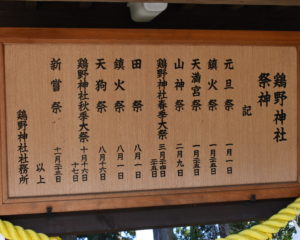 鶏野神社
祭神
記
元旦祭 一月一日
鎮火祭 一月二十五日
天満宮祭 一月二十五日
山神祭 二月九日
鶏野神社春季大祭 三月二十四日
二十五日
田祭 八月一日
鎮火祭 八月一日
天狗祭 八月十六日
鶏野神社秋季大祭 十月十六日
十七日
新嘗祭 十一月二十三日
以上
鶏野神社社務所